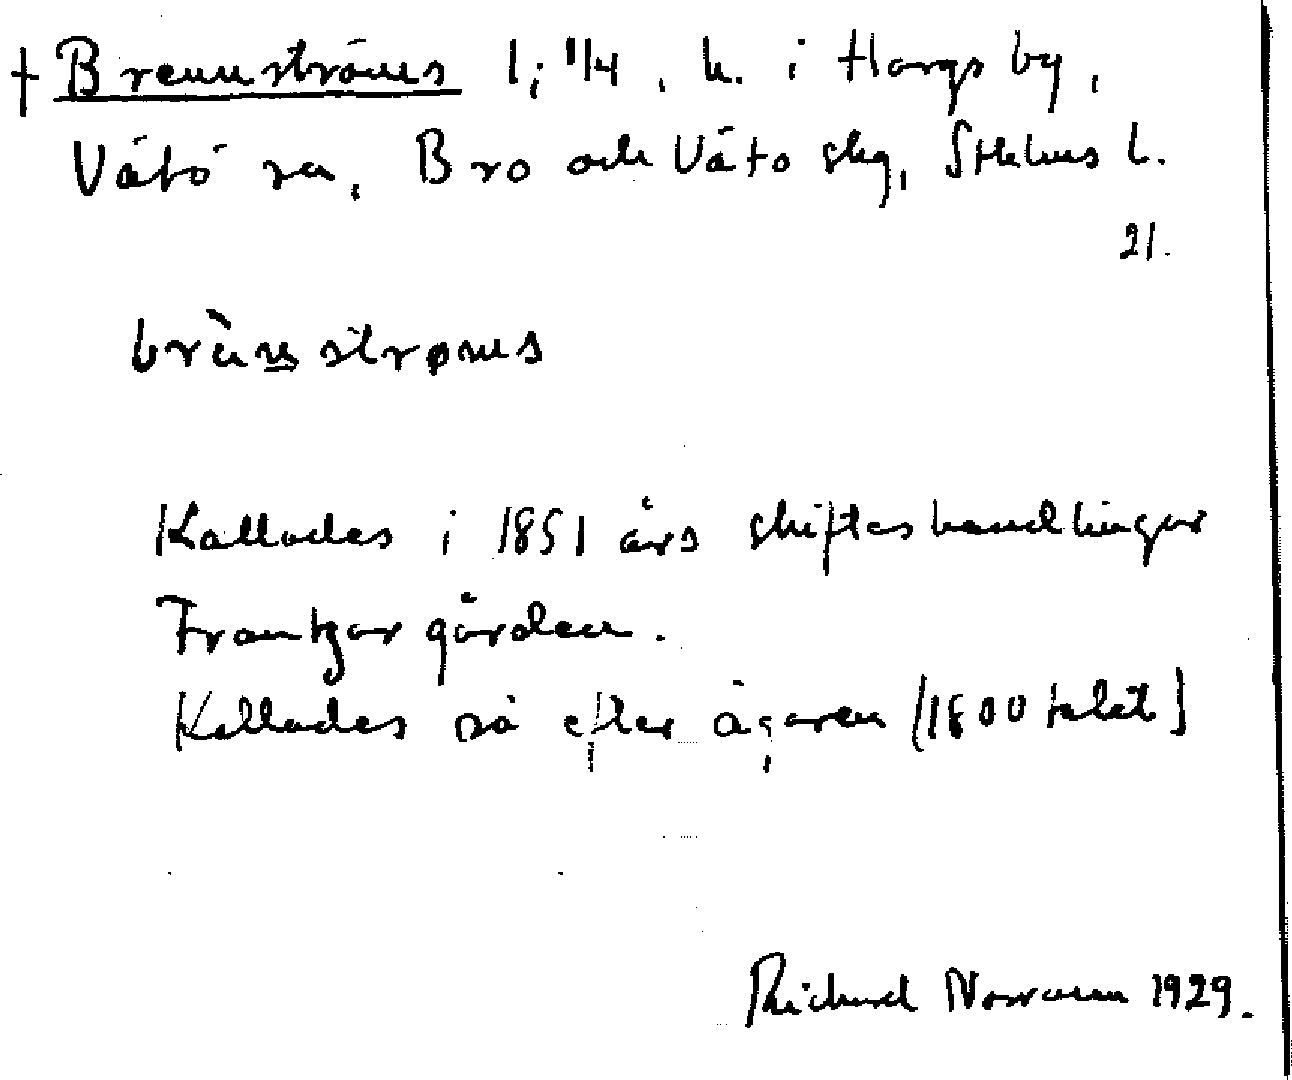 † Brennströms 1; 1/4, h. i Hargs by,
Vätö sn, Bro och Vätö skg, Sthlms l.
21.
brän̲strøms
Kallades i 1851 års skifteshandlingar
Frantzar gården.
Kallades så efter ägaren (1800 talet)
Richard Norrman 1929.